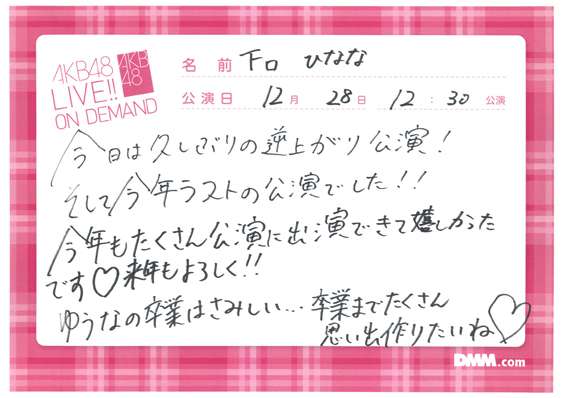 AKB48
LIVE!!
ON DEMAND
AKB
48
名前 下口 ひなな
公演日 12月 28日 12:30 公演
今日は久しぶりの逆上がり公演!
そして今年ラストの公演でした!!
今年もたくさん公演に出演できて嬉しかった
です♡来年もよろしく!!
ゆうなの卒業はさみしい… 卒業までたくさん
思い出作りたいね♡
DMM.com